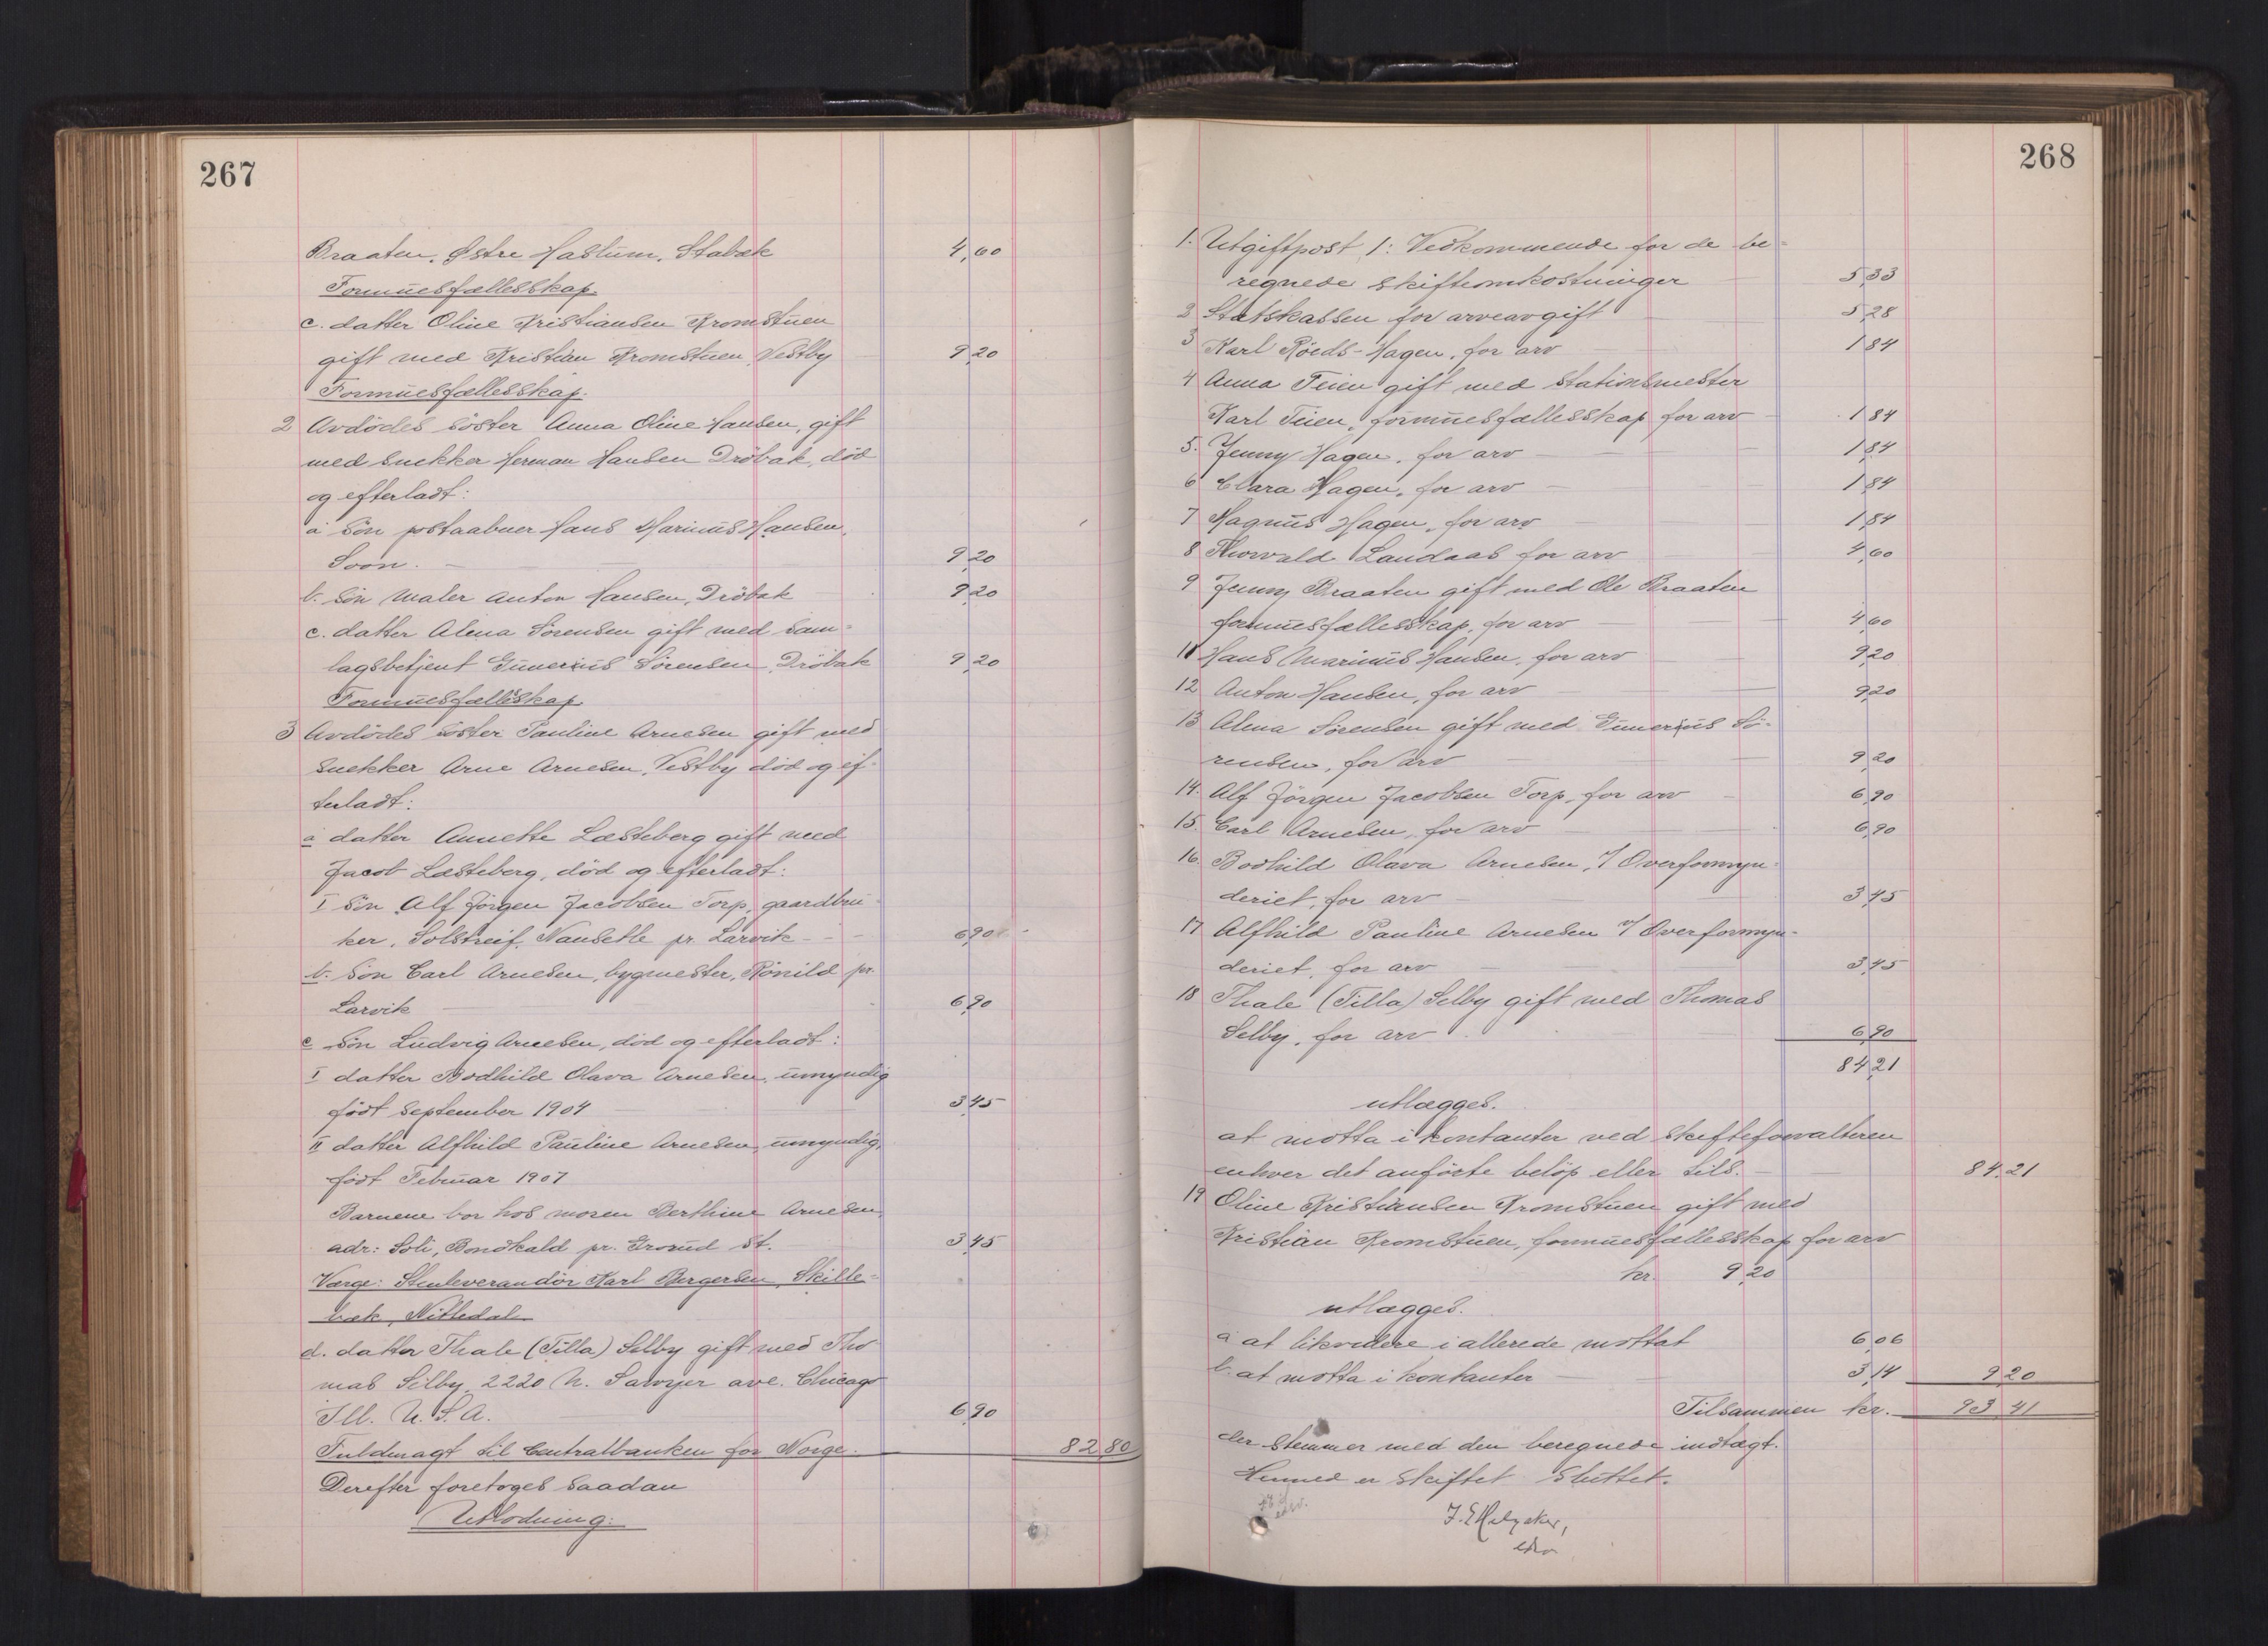 267
Braaten, Østre Haslum, Stabæk 4,60
Formuesfællesskap.
c. datter Oline Kristiansen Kromstuen
gift med Kristian Kromstuen, Vestby 9,20
Formuesfællesskap.
2 Avdödes söster Anna Oline Hansen, gift
med snekker Herman Hansen Dröbak, död
og efterladt:
a sön postaabner Hans Marinus Hansen,
Soon. 9,20
b. sön maler Anton Hansen, Dröbak 9,20
c. datter Alma Sörensen gift med sam=
lagsbetjent Gunerius Sörensen, Dröbak 9,20
Formuesfællesskap.
3 Avdödes söster Pauline Arnesen gift med
snekker Arne Arnesen, Vestby död og ef-
terladt:
a datter Annette Læsteberg gift med
Jacob Læsteberg, död og efterladt:
I sön Alf Jörgen Jacobsen Torp, gaardbru-
ker, Solstreif, Nansetle pr. Larvik 6,90
b. sön Carl Arnesen, bygmester, Rönild pr.
Larvik 6,90
c sön Ludvig Arnesen, död og efterladt:
I datter Bodhild Olava Arnesen, umyndig
född september 1904 3,45
II datter Alfhild Pauline Arnesen, umyndig,
född Februar 1907
Barnene bor hos moren Berthine Arnesen,
adr: Soli, Bondkald pr. Grorud st. 3,45
Værge: Stenleverandör Karl Borgersen, Skille=
bæk, Nittedal
d. datter Thale (Tilla) Selby gift med Tho
mas Selby, 2220 N. Sawyer ave. Chicago
Ill. U.S.A. 6,90
Fuldmagt til Centralbanken for Norge. 82,80
Derefter foretoges saadan
Utlodning:
268
1. Utgiftpost 1: Vedkommende for de be=
regnede skifteomkostninger 5,33
2 Statskassen for arveavgift 5,28
3 Karl Röeds-Hagen, for arv 1,84
4 Anna Teien gift med stationsmester
Karl Teien, formuesfællesskap for arv 1,84
5. Jenny Hagen, for arv 1,84
6 Clara Hagen, for arv 1,84
7 Magnus Hagen, for arv 1,84
8 Thorvald Landaas for arv 4,60
9 Jenny Braaten gift med Ole Braaten
formuesfællesskap, for arv 4,60
11 Hans Marinus Hansen, for arv 9,20
12 Anton Hansen, for arv 9,20
13 Alma Sörensen gift med Gunerius Sö-
rensen, for arv 9,20
14. Alf Jörgen Jacobsen Torp, for arv 6,90
15. Carl Arnesen, for arv 6,90
16. Bodhild Olava Arnesen, v/ Overformyn-
deriet, for arv 3,45
17 Alfhild Pauline Arnesen v/ Overformyn-
deriet, for arv 3,45
18 Thale (Tilla) Selby gift med Thomas
Selby, for arv 6,90
84,21
utlægges.
at motta i kontanter ved skifteforvalteren
enhver det anförte belöp eller tils. 84,21
19 Oline Kristiansen Kromstuen gift med
Kristian Kromstuen, formuesfællesskap for arv
kr. 9,20
utlægges.
a at likvidere i allerede mottat 6,06
b. at motta i kontanter 3,14 9,20
Tilsammen kr. 93,41
der stemmer med den beregnede indtægt.
Hermed er skiftet sluttet.